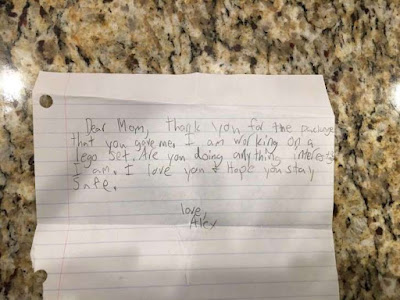 Dear Mom, Thank you for the package
that you gave me. I am working on a
lego set. Are you doing anything
I am. I love you & Hope you stay
Safe.
love,
Alex